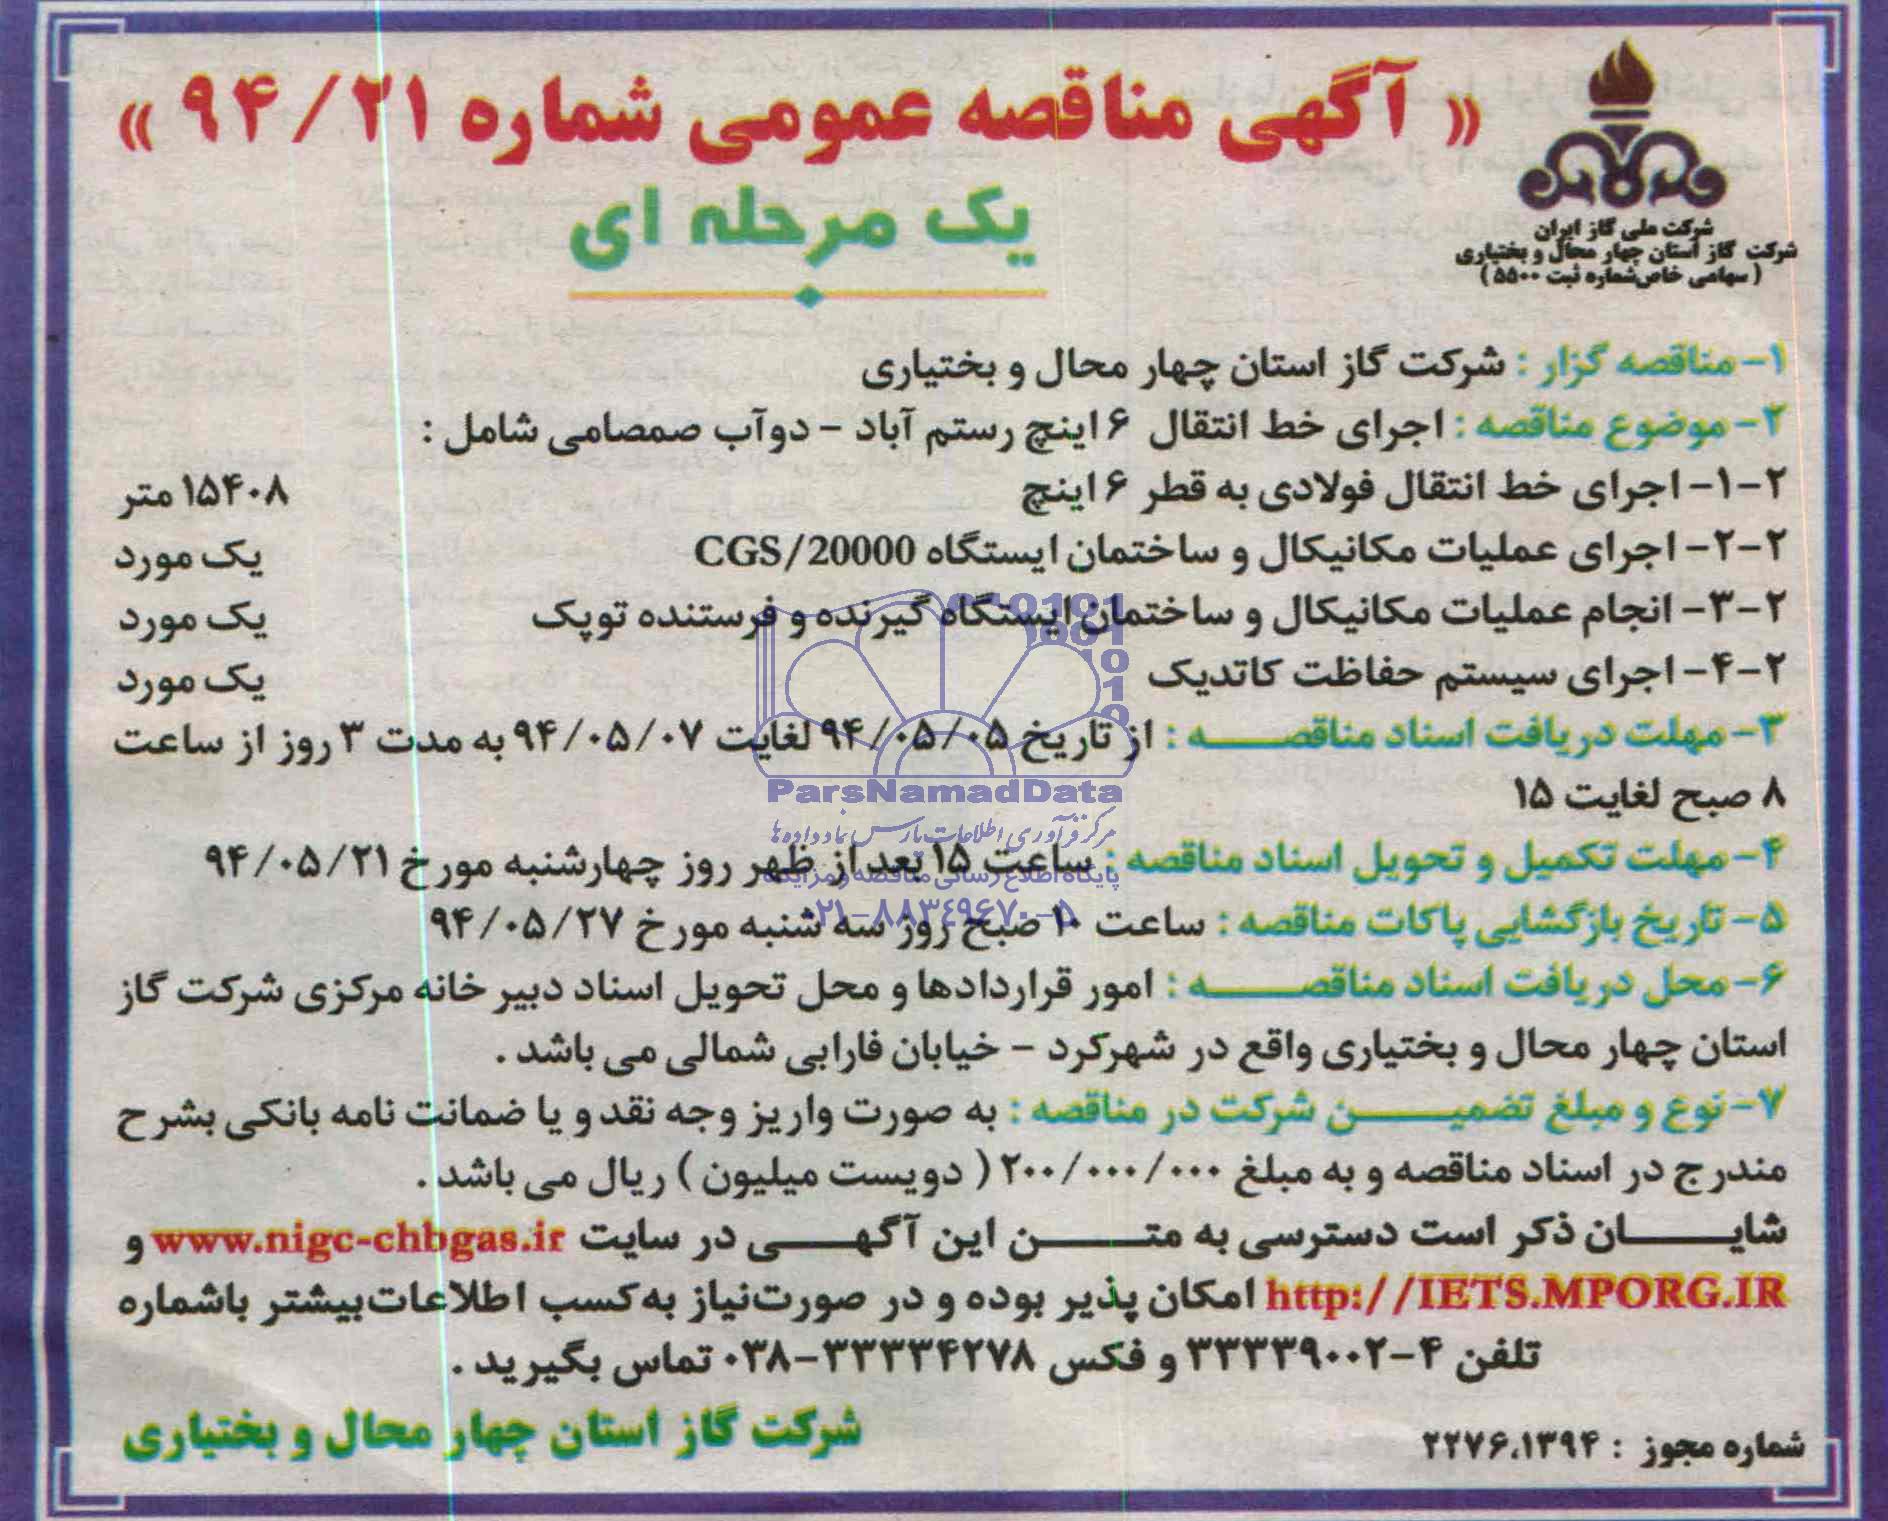 « آگهی مناقصه عمومی شماره ۹۴/۲۱ »
یک مرحله ای
شرکت ملی گاز ایران
شرکت گاز استان چهار محال و بختیاری
( سهامی خاص شماره ثبت ۵۵۰۰ )
۱- مناقصه گزار : شرکت گاز استان چهار محال و بختیاری
۲- موضوع مناقصه : اجرای خط انتقال ۶ اینچ رستم آباد - دوآب صمصامی شامل :
۲-۱- اجرای خط انتقال فولادی به قطر ۶ اینچ ۱۵۴۰۸ متر
۲-۲- اجرای عملیات مکانیکال و ساختمان ایستگاه CGS/20000 یک مورد
۲-۳- انجام عملیات مکانیکال و ساختمان ایستگاه گیرنده و فرستنده توپک یک مورد
۲-۴- اجرای سیستم حفاظت کاتدیک یک مورد
۳- مهلت دریافت اسناد مناقصه : از تاریخ ۹۴/۰۵/۰۵ لغایت ۹۴/۰۵/۰۷ به مدت ۳ روز از ساعت
۸ صبح لغایت ۱۵
ParsNamadData
مرکز فرآوری اطلاعات پارس نماد داده ها
۴- مهلت تکمیل و تحویل اسناد مناقصه : ساعت ۱۵ بعد از ظهر روز چهارشنبه مورخ ۹۴/۰۵/۲۱
پایگاه اطلاع رسانی مناقصه و مزایده
۰۲۱-۸۸۳۴۹۶۷۰-۵
۵- تاریخ بازگشایی پاکات مناقصه : ساعت ۱۰ صبح روز سه شنبه مورخ ۹۴/۰۵/۲۷
۶- محل دریافت اسناد مناقصه : امور قراردادها و محل تحویل اسناد دبیر خانه مرکزی شرکت گاز
استان چهار محال و بختیاری واقع در شهرکرد - خیابان فارابی شمالی می باشد .
۷- نوع و مبلغ تضمین شرکت در مناقصه : به صورت واریز وجه نقد و یا ضمانت نامه بانکی بشرح
مندرج در اسناد مناقصه و به مبلغ ۲۰۰/۰۰۰/۰۰۰ ( دویست میلیون ) ریال می باشد .
شایان ذکر است دسترسی به متن این آگهی در سایت www.nigc-chbgas.ir و
http://IETS.MPORG.IR امکان پذیر بوده و در صورت نیاز به کسب اطلاعات بیشتر باشماره
تلفن ۴-۳۳۳۳۹۰۰۲ و فکس ۳۳۳۳۴۲۷۸-۰۳۸ تماس بگیرید .
شرکت گاز استان چهار محال و بختیاری
شماره مجوز : ۲۲۷۶،۱۳۹۴